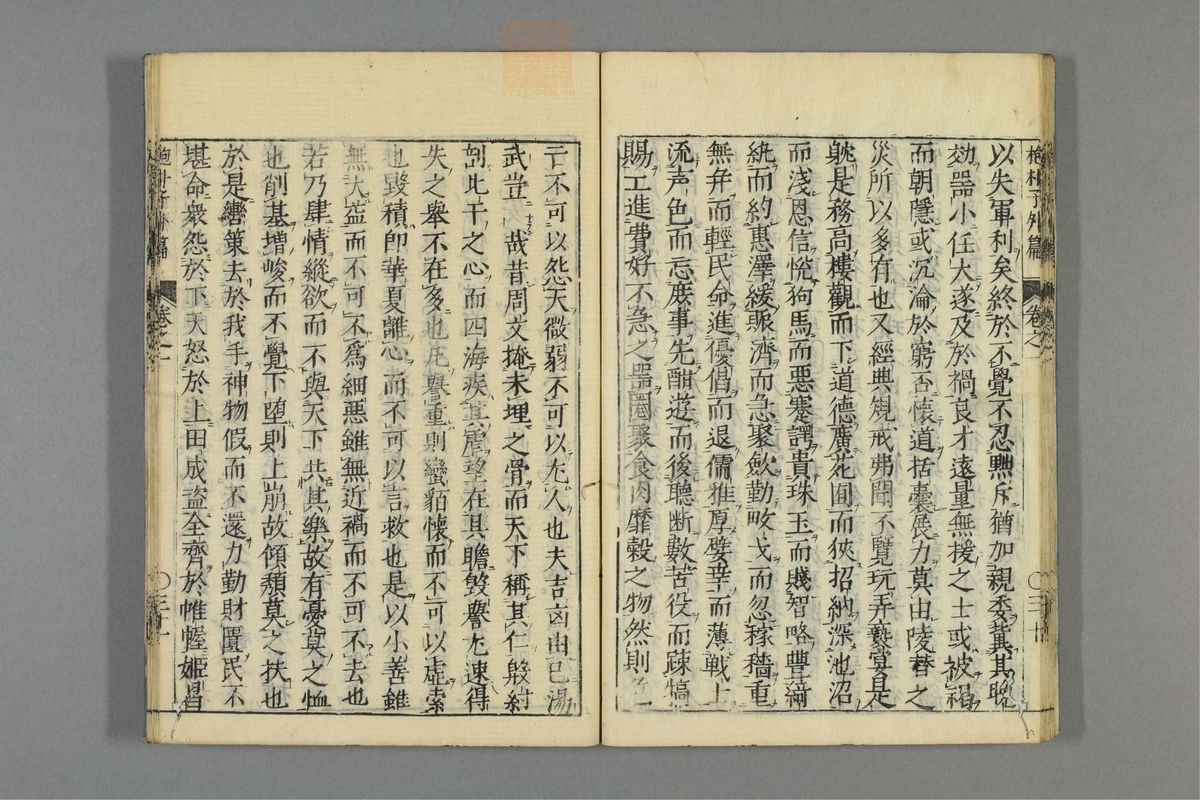 抱朴子外篇 卷之一 〇三十
以失軍利矣終於不覺不忍黜斥猶加親委冀其晚
効器小任大遂及於禍良才遠量無援之士或被褐
而朝隱或沉淪於窮否懷道括囊展力莫由陵替之
災所以多有也又經典規戒弗聞不覽玩弄褻宴是
躭是務高樓觀而下道德廣苑囿而狹招納深池沼
而淺恩信悅狗馬而惡蹇諤貴珠玉而賤智略豐綺
紈而約惠澤緩賑濟而急聚歛勤畋弋而忽稼穡重
無幷而輕民命進優倡而退儒雅厚嬖幸而薄戰士
流声色而忘庶事先酣遊而後聽断數苦役而疎犒
賜工進費好不急之器圈聚食肉靡穀之物然則
二不可以怨天微弱不可以尤人也夫吉凶由已湯
武豈哉昔周文掩未埋之骨而天下稱其仁殷紂
剖比干之心而四海疾其虐望在具瞻毀譽尤速得
失之舉不在多也凡譽重則蠻貊懷而不可以虛索
也毀積即華夏離心而不可以言救也是以小善雖
無大益而不可不爲細惡雖無近禍而不可不去也
若乃肆情縱欲而不與天下共其樂故有憂莫之恤
也削基增峻而不覺下堕則上崩故傾頽莫之扶也
於是轡策去於我手神物假而不還力勤財匱民不
堪命衆怨於下天怒於上田成盜全齊於帷幄姬昌
抱朴子外篇 卷之一 〇三十一